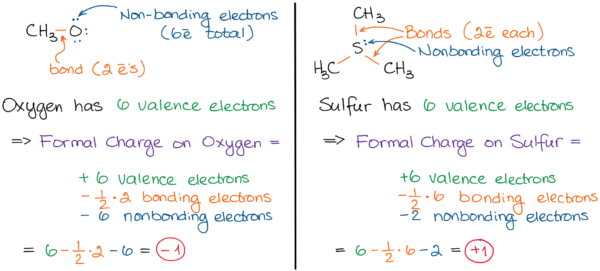 Non-bonding electrons
(6ē total)
CH₃-O:
bond (2 ē's)
Oxygen has 6 valence electrons
=> Formal Charge on Oxygen =
+ 6 valence electrons
- 1/2 · 2 bonding electrons
- 6 nonbonding electrons
= 6 - 1/2 · 2 - 6 = -1
CH₃
Bonds (2ē each)
S:
Nonbonding electrons
H₃C
CH₃
Sulfur has 6 valence electrons
=> Formal Charge on Sulfur =
+6 valence electrons
-1/2 · 6 bonding electrons
-2 nonbonding electrons
= 6 - 1/2 · 6 - 2 = +1